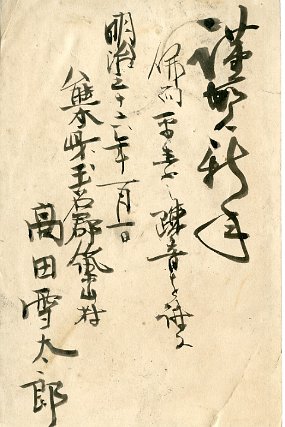 謹賀新年
併而平素之疎音を謝す
明治三十六年一月一日
熊本県玉名郡 村
高田雪太郎